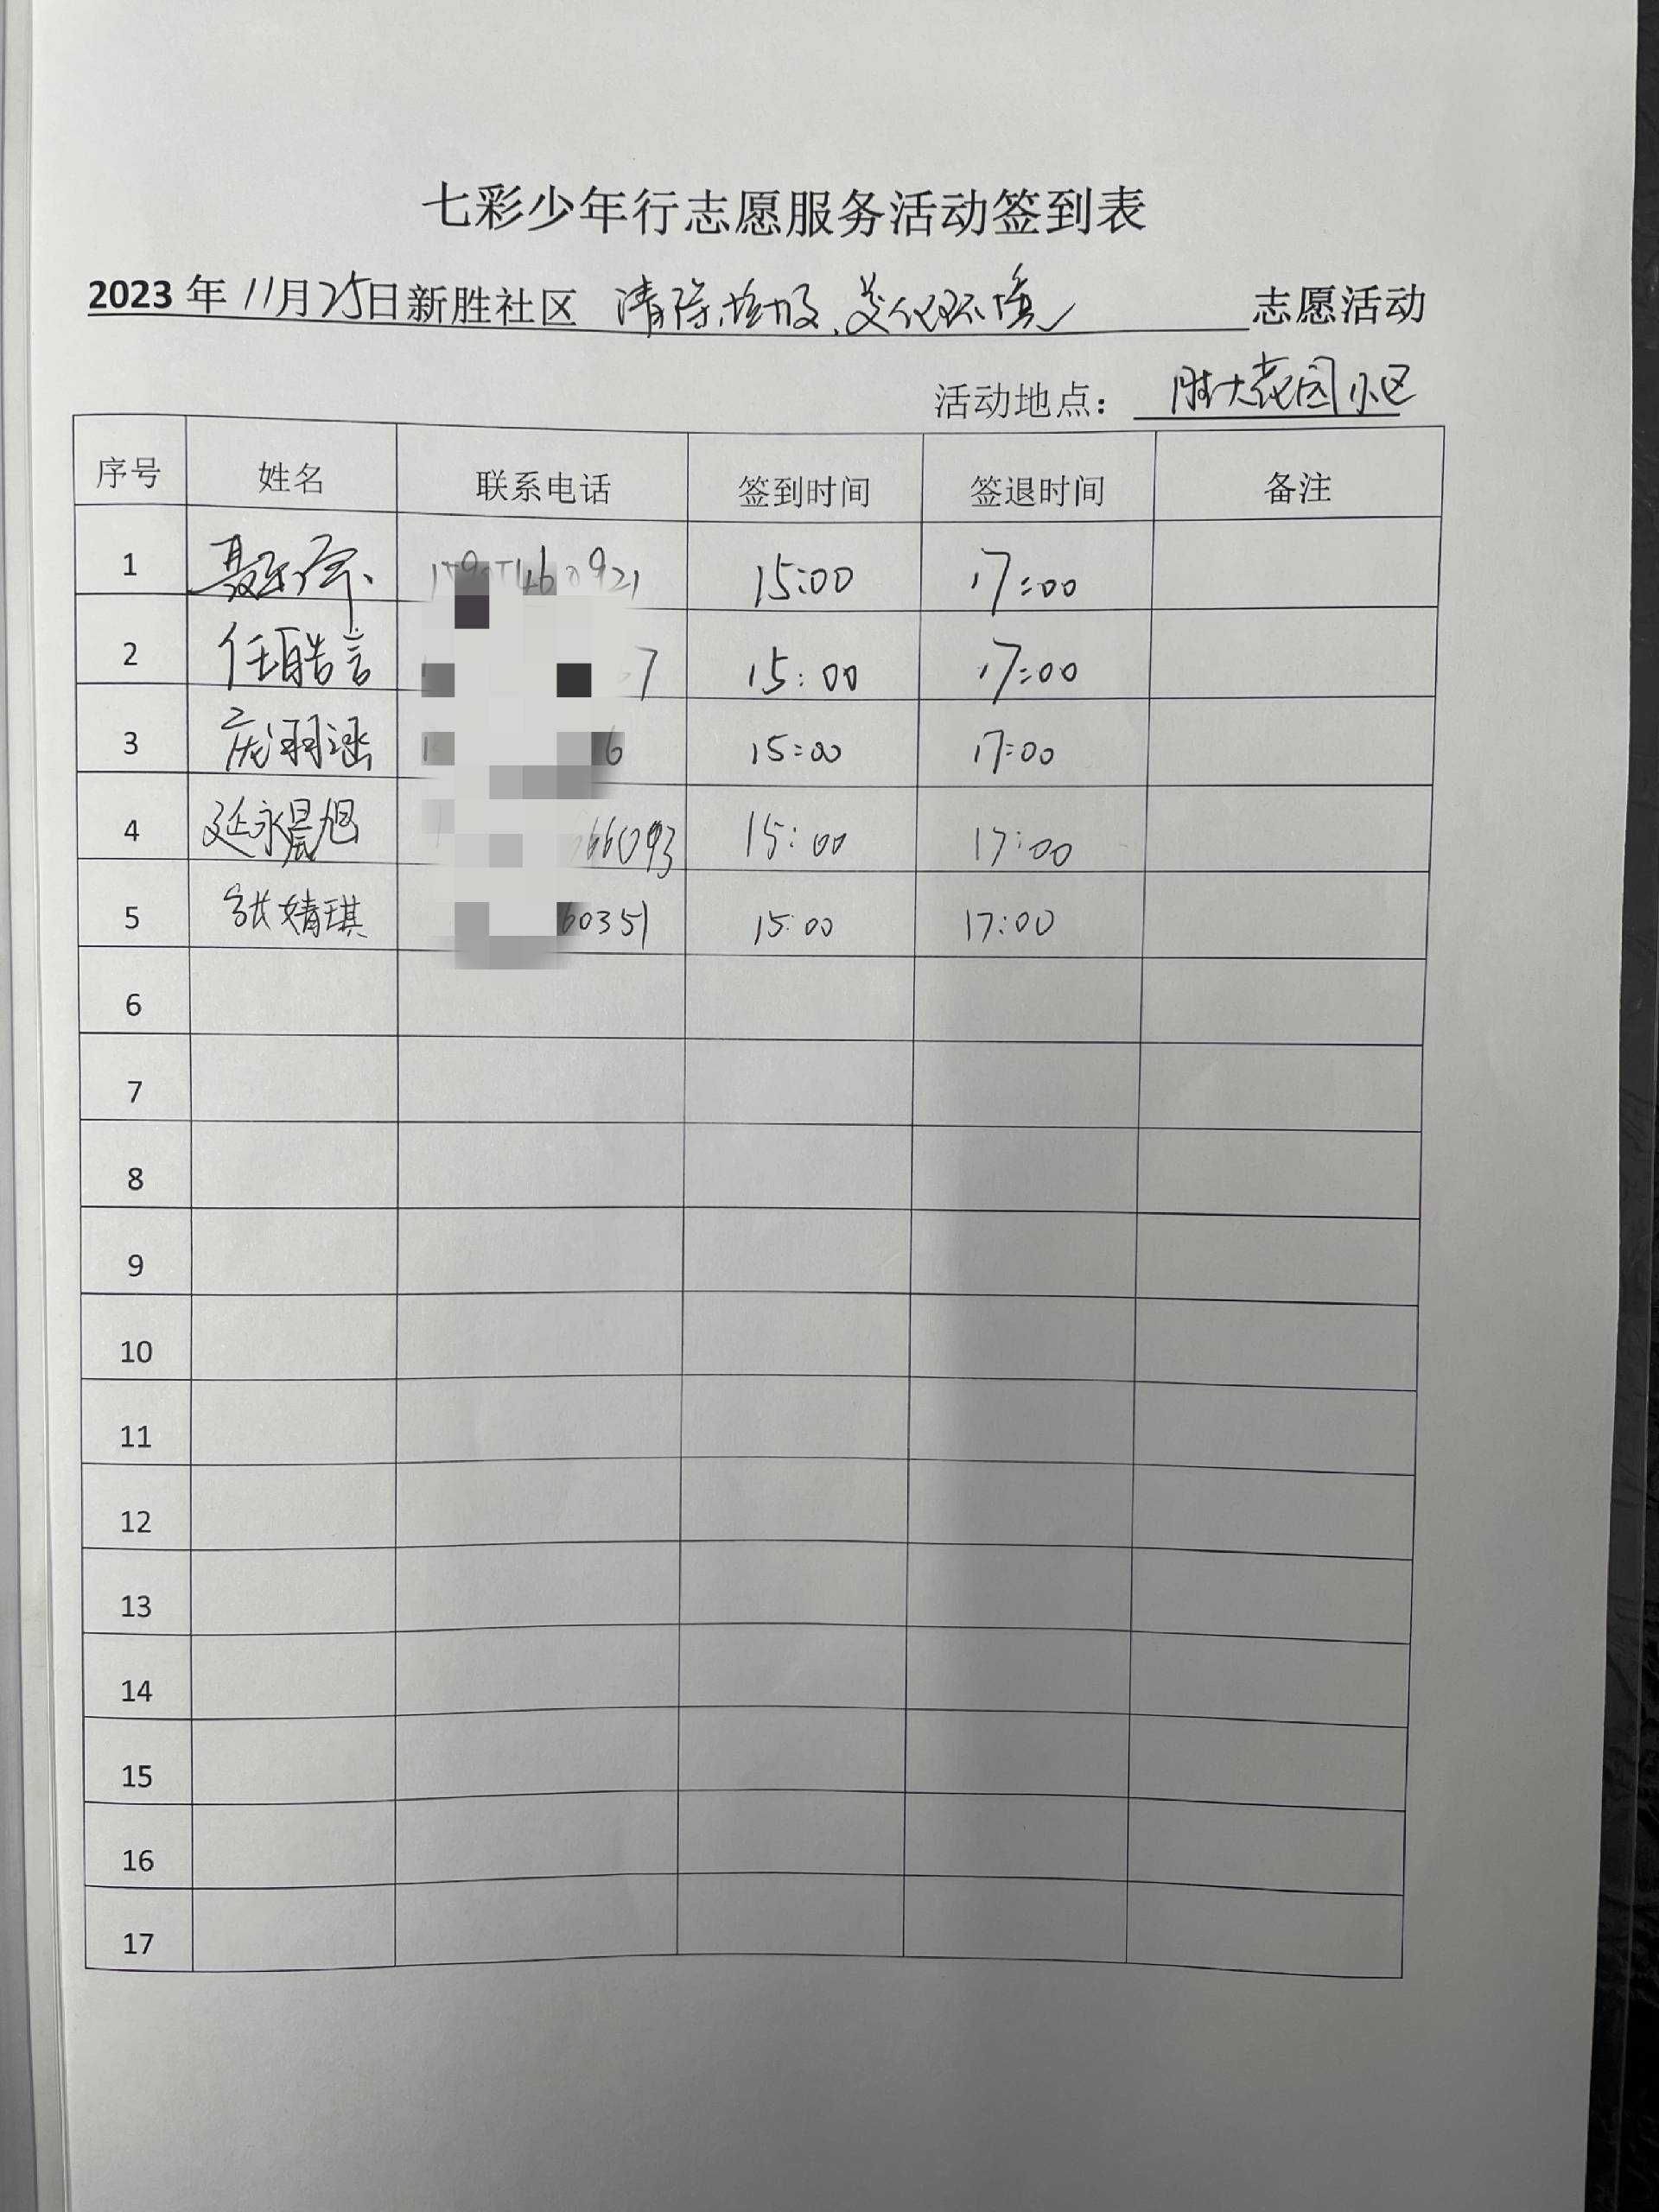 七彩少年行志愿服务活动签到表
2023 年 11月25日新胜社区 清除垃圾、美化环境 志愿活动
活动地点： 胜大花园小区
序号 姓名 联系电话 签到时间 签退时间 备注
1 15:00 17:00
2 任皓言 7 15:00 17:00
3 庞羽涵 6 15:00 17:00
4 延永晨旭 666093 15:00 17:00
5 张婧琪 60351 15:00 17:00
6
7
8
9
10
11
12
13
14
15
16
17